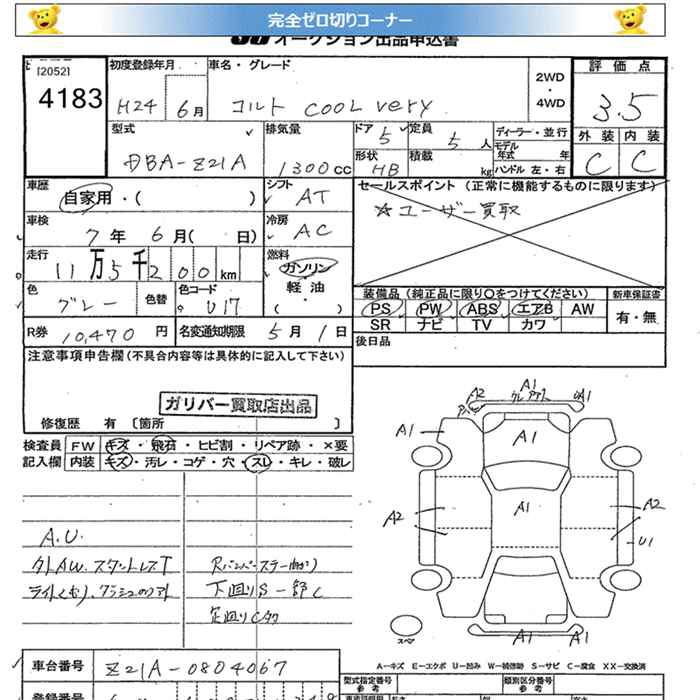 完全ゼロ切りコーナー
オークション出品申込書
[2052]
4183
初度登録年月
H24 6月
車名・グレード
コルト COOL Very
2WD
・
4WD
評価点
3.5
外装 内装
C C
型式
DBA-Z21A
排気量
1300cc
ドア 5
定員 5人
形状 HB
積載 kg
ディーラー・並行
モデル年式 年
ハンドル 左・右
車歴
自家用・( )
シフト AT
車検
7年6月( 日)
冷房 AC
走行
11万5千200km
燃料
ガソリン
・
軽油
( )
色
グレー
色替
色コード
U17
R券 10,470円
名変通知期限 5月1日
セールスポイント (正常に機能するものに限ります)
☆ユーザー買取
装備品(純正品に限り○をつけてください)
PS PW ABS エアB AW
SR ナビ TV カワ
新車保証書
有・無
後日品
注意事項申告欄(不具合内容等は具体的に記入して下さい)
ガリバー買取店出品
修復歴 有 〔箇所 〕
検査員
記入欄
FW キズ・飛石・ヒビ割・リペア跡・×要
内装 キズ・汚レ・コゲ・穴・スレ・キレ・破レ
A.U.
外AW.スタットレスT
ライトくもり.
Rバンパーステー曲り
下廻りS
足廻りC
A1
A2
A1
A1
A1
A1
A2
A2
U1
A1
A1
スペア
A-キズ E-エクボ U-凹み W-補修跡 S-サビ C-腐食 XX-交換済
車台番号 Z21A-0804067
登録番号
型式指定番号
参考
類別区分番号
参考